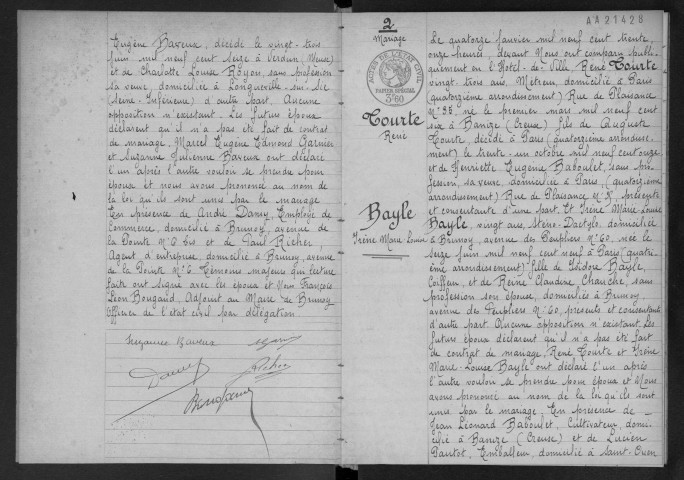 Eugène Baveux, décédé le vingt-trois
juin mil neuf cent seize à Verdun (Meuse)
et de Charlotte Louise Royon, sans profession
sa veuve, domiciliée à Longueville-sur-Scie
(Seine-Inférieure) d'autre part. Aucune
opposition n'existant. Les futurs époux
déclarent qu'il n'a pas été fait de contrat
de mariage. Marcel Eugène Edmond Garnier
et Suzanne Julienne Baveux ont déclaré
l'un après l'autre vouloir se prendre pour
époux et nous avons prononcé au nom de
la loi qu'ils sont unis par le mariage
En présence de André Damy, Employé de
Commerce, domicilié à Brunoy, avenue de
la Pointe N° 6 bis et de Paul Richer,
Agent d'entreprise, domicilié à Brunoy, avenue
de la Pointe N° 6. Témoins majeurs qui lecture
faite ont signé avec les époux et Nous François
Léon Bougard, Adjoint au Maire de Brunoy
Officier de l'état civil par délégation
Suzanne Baveux
2
Mariage
ACTES DE L'ETAT CIVIL
PAPIER SPÉCIAL
3f60
Tourte
René
Bayle
Irène Marie Louise
AA21428
Le quatorze janvier mil neuf cent trente,
onze heures, devant Nous ont comparu publi-
quement en l'Hotel-de-Ville René Tourte
vingt-trois ans, Metreur, domicilié à Paris
(quatorzième arrondissement) Rue de Plaisance
N° 38, né le premier mars mil neuf cent
six à Banize (Creuse) fils de Auguste
Tourte, décédé à Paris (quatorzième arrondisse-
ment) le trente-un octobre mil neuf cent onze
et de Henriette Eugénie Baboulet, sans pro-
fession, sa veuve, domiciliée à Paris, (quatorzième
arrondissement) Rue de Plaisance N° 38, présente
et consentante d'une part. Et Irène Marie-Louise
Bayle, vingt ans, Sténo-Dactylo, domiciliée
à Brunoy, avenue des Peupliers N° 60, née le
seize juin mil neuf cent neuf à Paris (quatri-
ème arrondissement) fille de Isidore Bayle,
Coiffeur, et de Reine Claudine Chauché, sans
profession son épouse, domiciliés à Brunoy,
avenue des Peupliers N° 60, présents et consentants
d'autre part. Aucune opposition n'existant. Les
futurs époux déclarent qu'il n'a pas été fait
de contrat de mariage. René Tourte et Irène
Marie-Louise Bayle ont déclaré l'un après
l'autre vouloir se prendre pour époux et Nous
avons prononcé au nom de la loi qu'ils sont
unis par le mariage. En présence de
Jean Léonard Baboulet, Cultivateur, domi-
cilié à Banize (Creuse) et de Lucien
Pautot, Emballeur, domicilié à Saint-Ouen